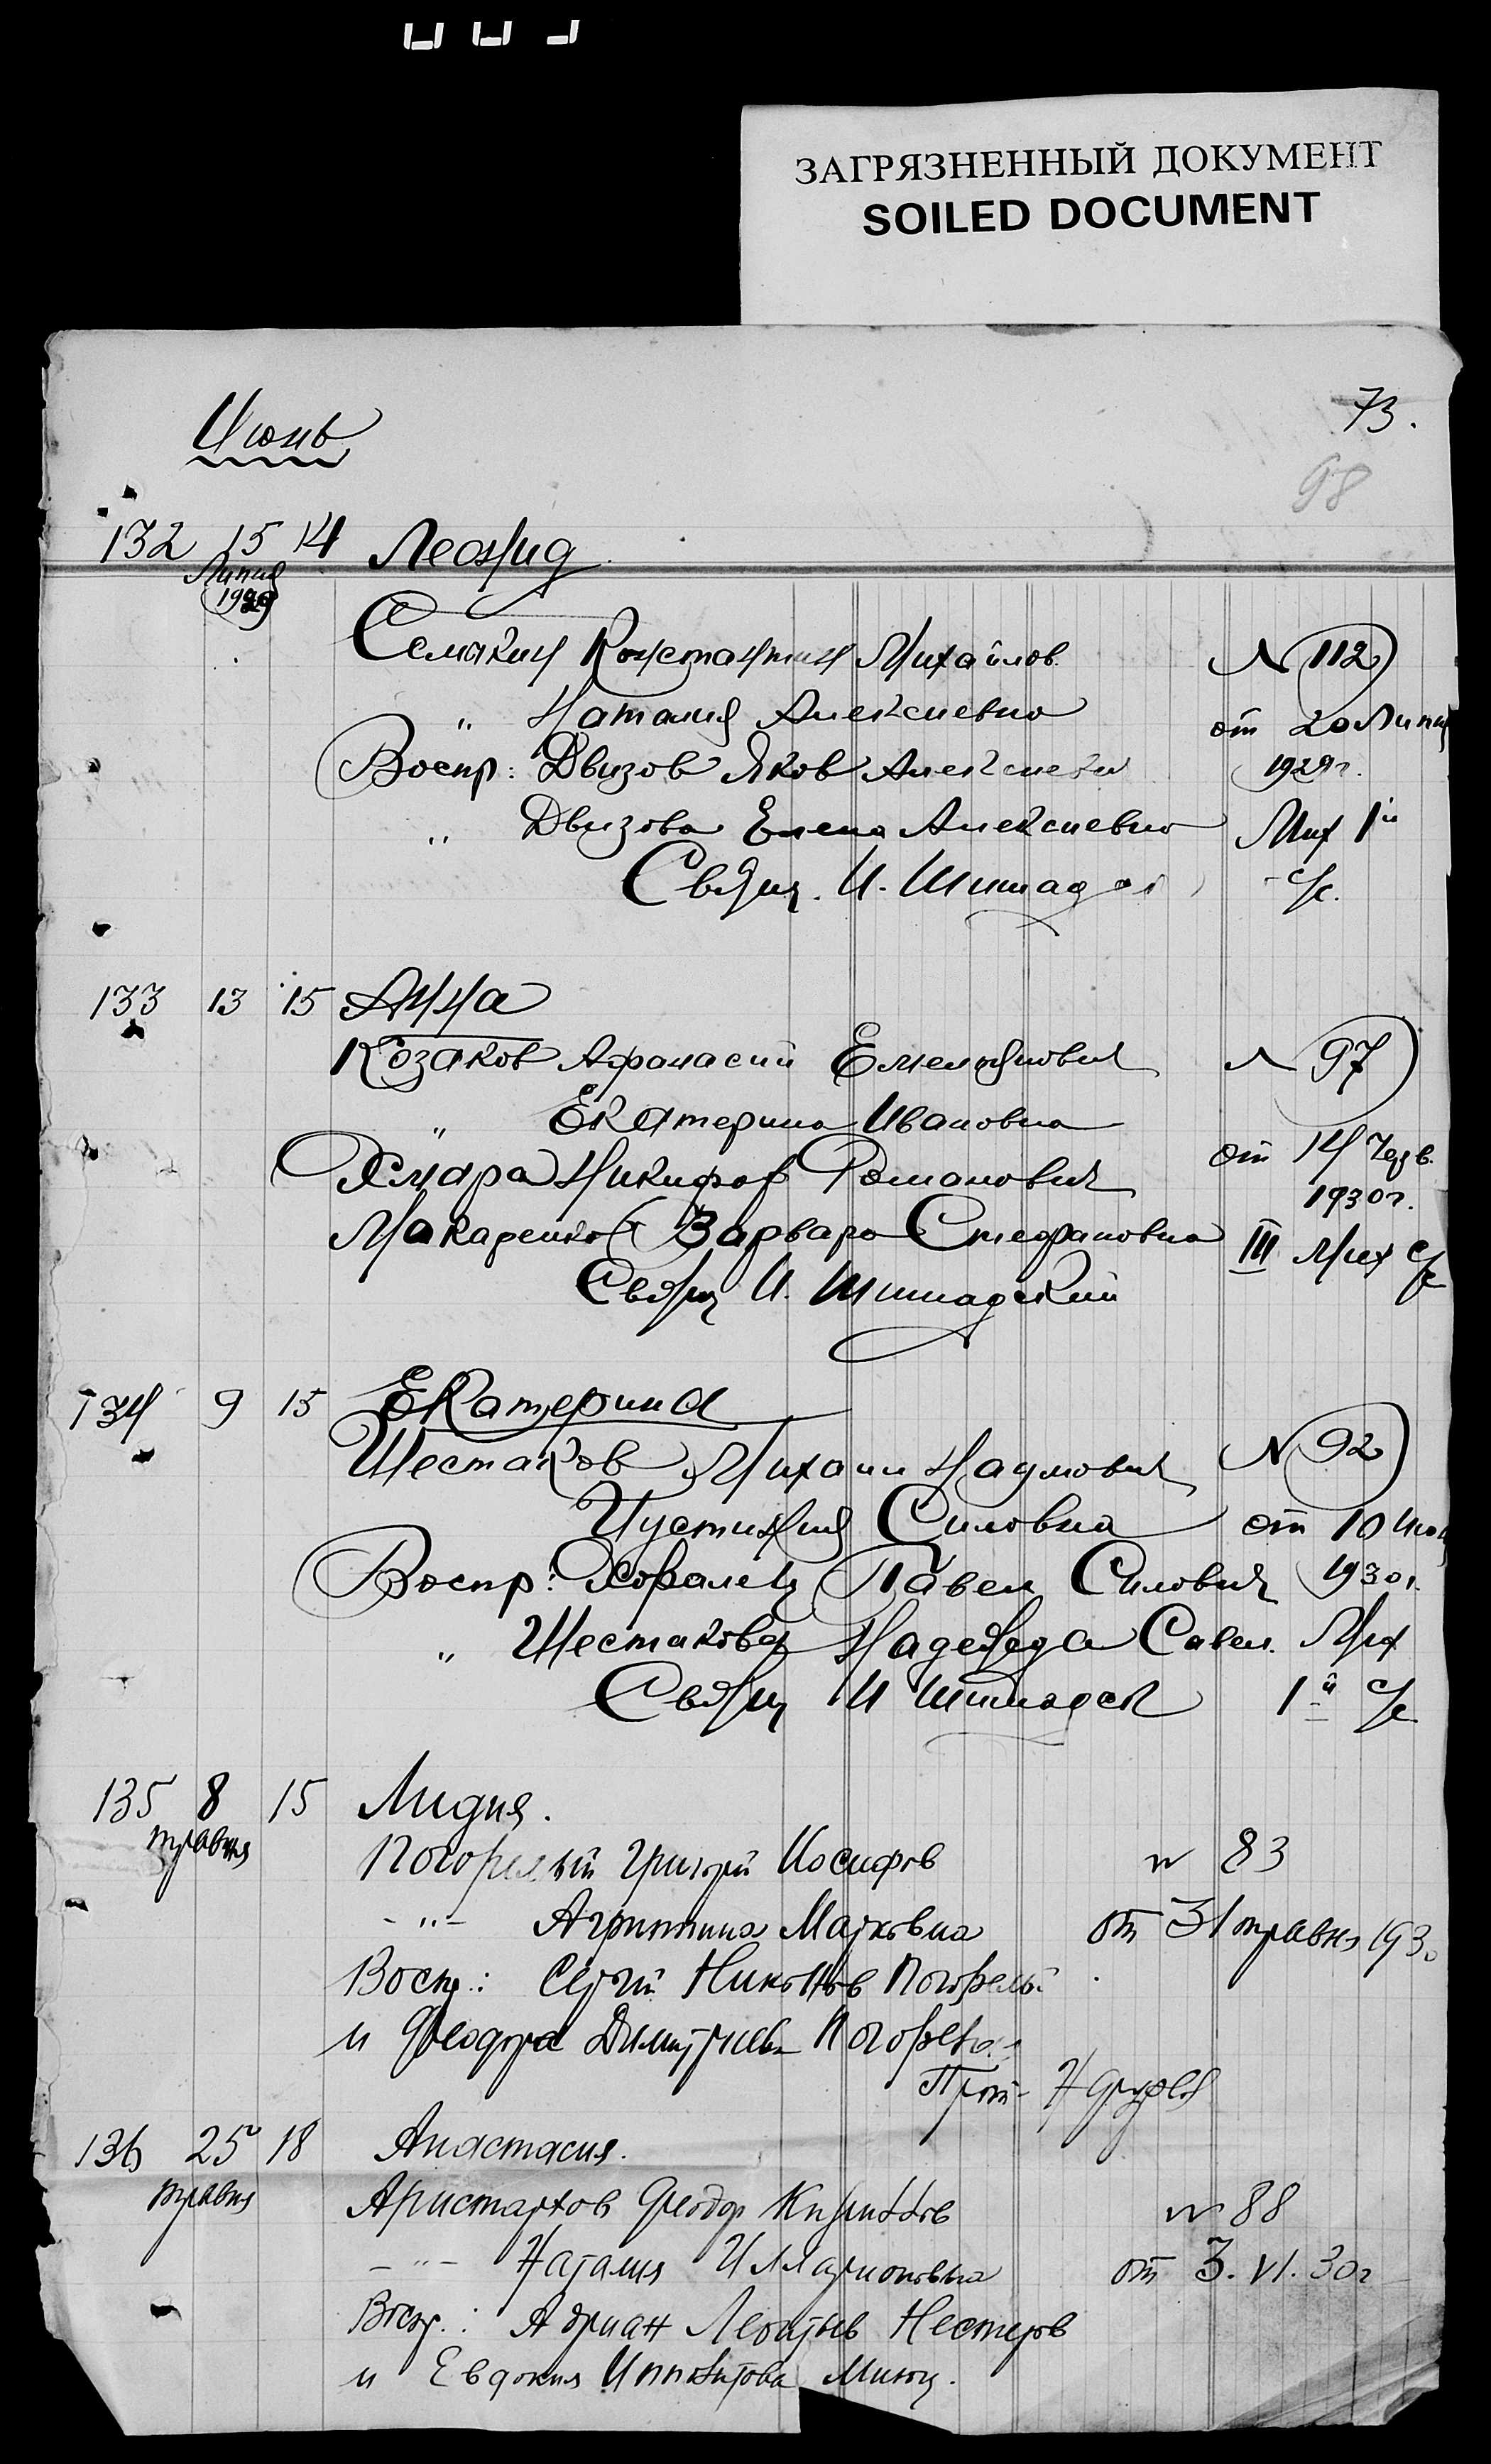 ЗАГРЯЗНЕННЫЙ ДОКУМЕНТ
SOILED DOCUMENT
Июнь
73.
98
132 15 14 Леонид
Липня
1929
Семякин Константин Михайлов. N 112
" Наталия Алексиевна от 20 Липня
Воспр: Двизов Яков Алексиеви 1929г.
" Двизова Елена Алексиевна Мих 1й
Свящ. И. с/с.
133 13 15 Анна
Козаков Афанасий Емельянович N 97
" Екатерина Ивановна
Хмара Никифор Романович от 14 Черв.
1930г.
Макаренко Варвара Стефановна III Мих с/с
Свящ И.
134 9 15 Екатерина
Шестаков Михаил Наумович N 92
Иустиния Силовна от 10 Июн
Воспр: Хоралец Павел Силович 1930г.
" Шестакова Надежда Савел. Мих
Свящ И 1й с/с
135 8 15 Лидия.
травня
Погорелый Григорий Иосифов N 83
-"- Агриппина Марковна от 31 травня 1930
Воспр.: Сергий Никол Погорелый
и Феодора Димитриев Погорел
Прот-
136 25 18 Анастасия.
травня
Аристархов Феодор Кириллов N 88
-"- Наталия Илларионовна от 3. VI. 30г
Воспр.: Адриан Леонтьев Нестеров
и Евдокия Ипполитова